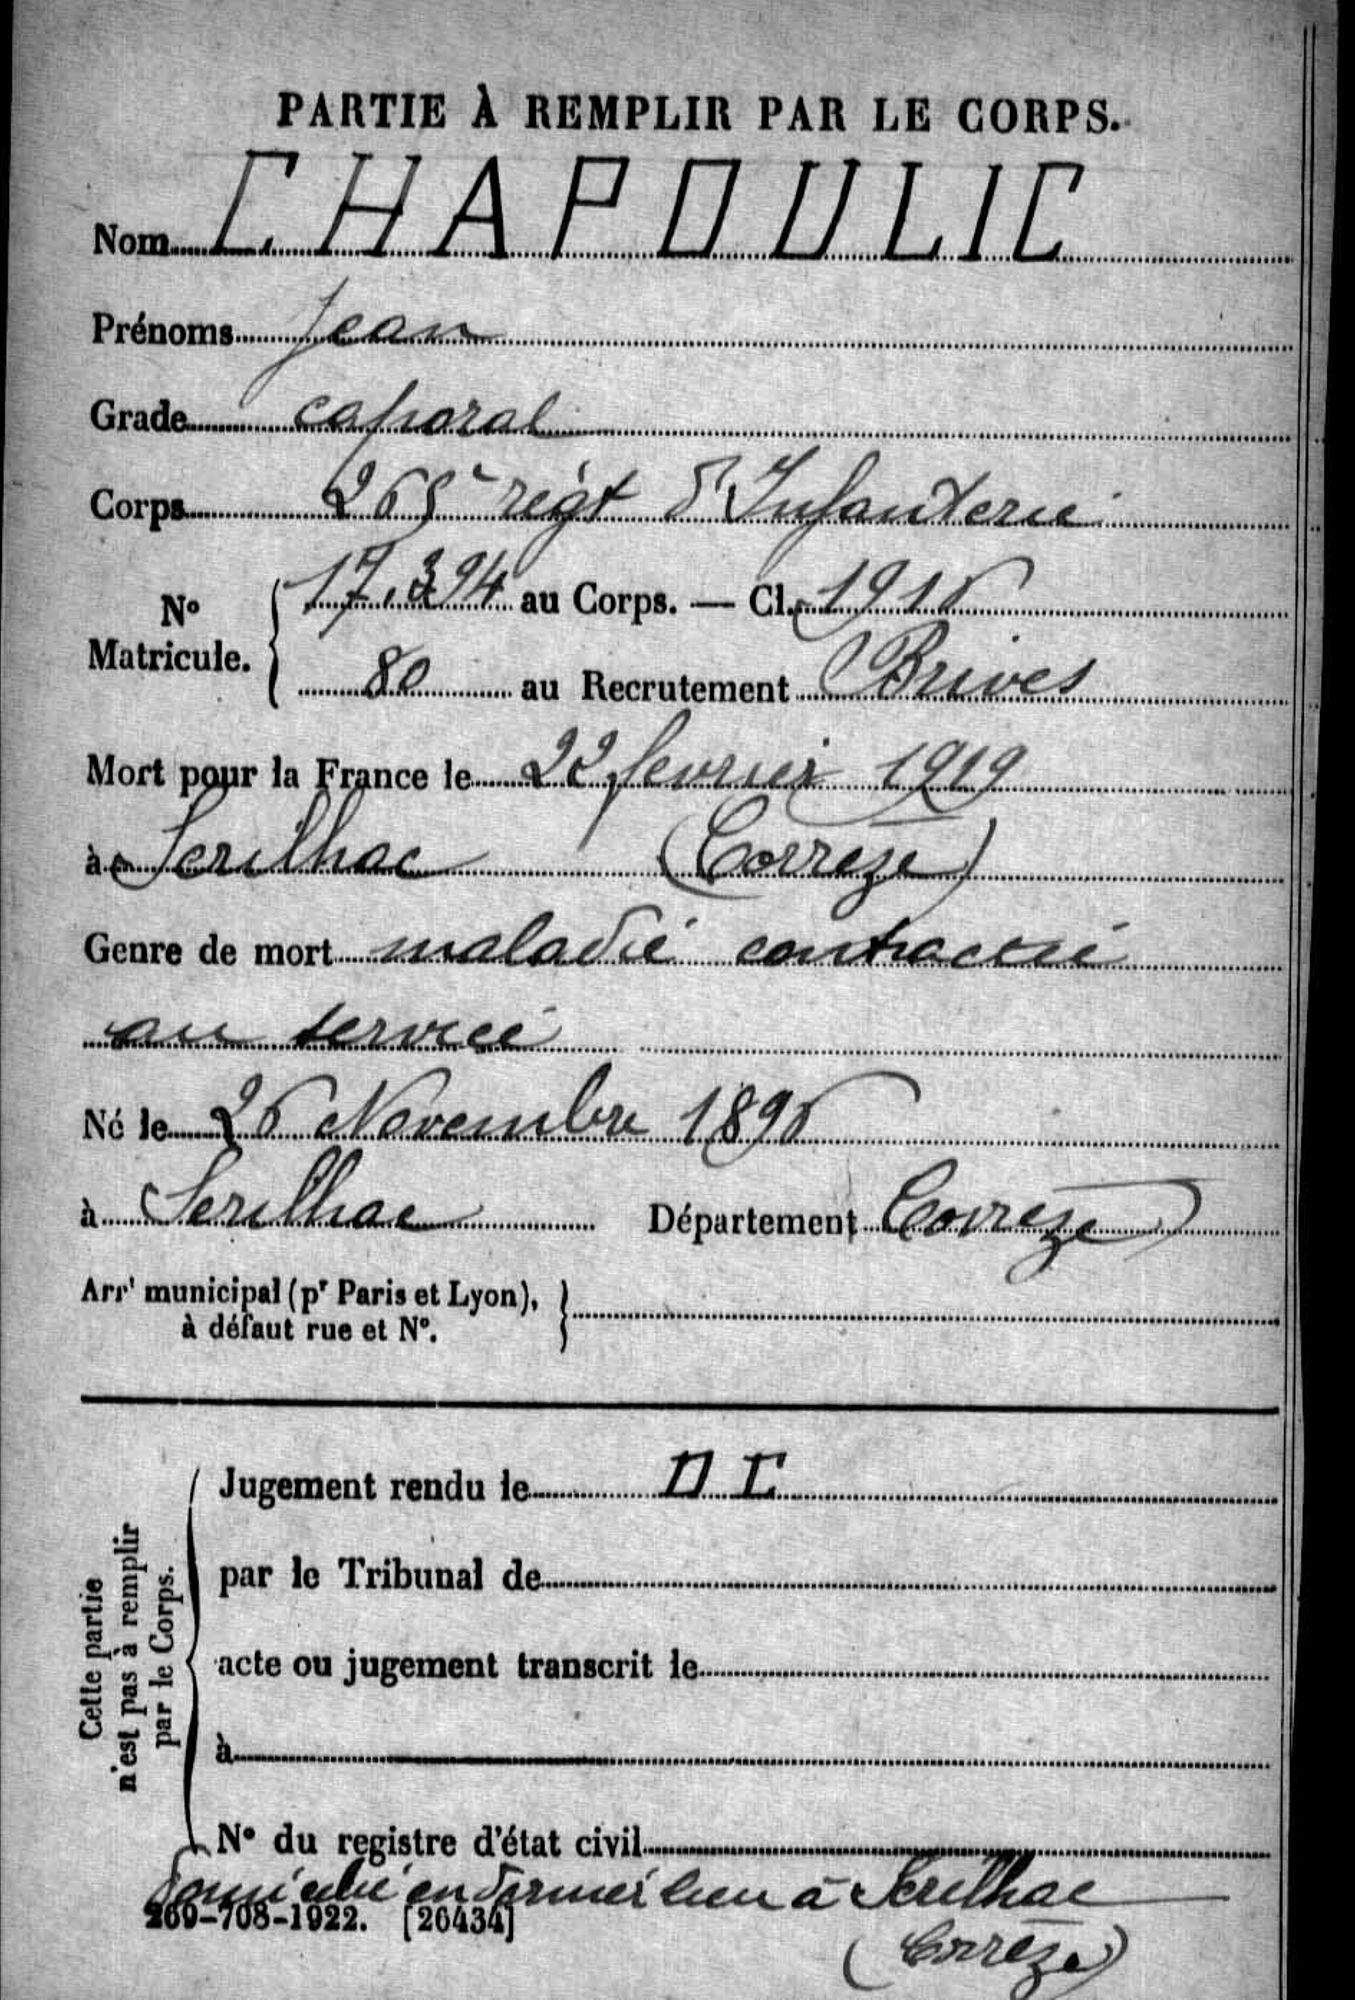 PARTIE À REMPLIR PAR LE CORPS.
Nom CHAPOULIC
Prénoms Jean
Grade caporal
Corps 265e régt d'Infanterie
N° Matricule. 17.394 au Corps. — Cl. 1916
80 au Recrutement Brives
Mort pour la France le 22 février 1919
à Serilhac (Corrèze)
Genre de mort maladie contractée
au service
Né le 26 Novembre 1896
à Serilhac Département Corrèze
Arrt municipal (pr Paris et Lyon),
à défaut rue et N°.
Cette partie
n'est pas à remplir
par le Corps.
Jugement rendu le D C
par le Tribunal de
acte ou jugement transcrit le
à
N° du registre d'état civil
Domicilié en dernier lieu à Serilhac
269-708-1922. [26434]
(Corrèze)